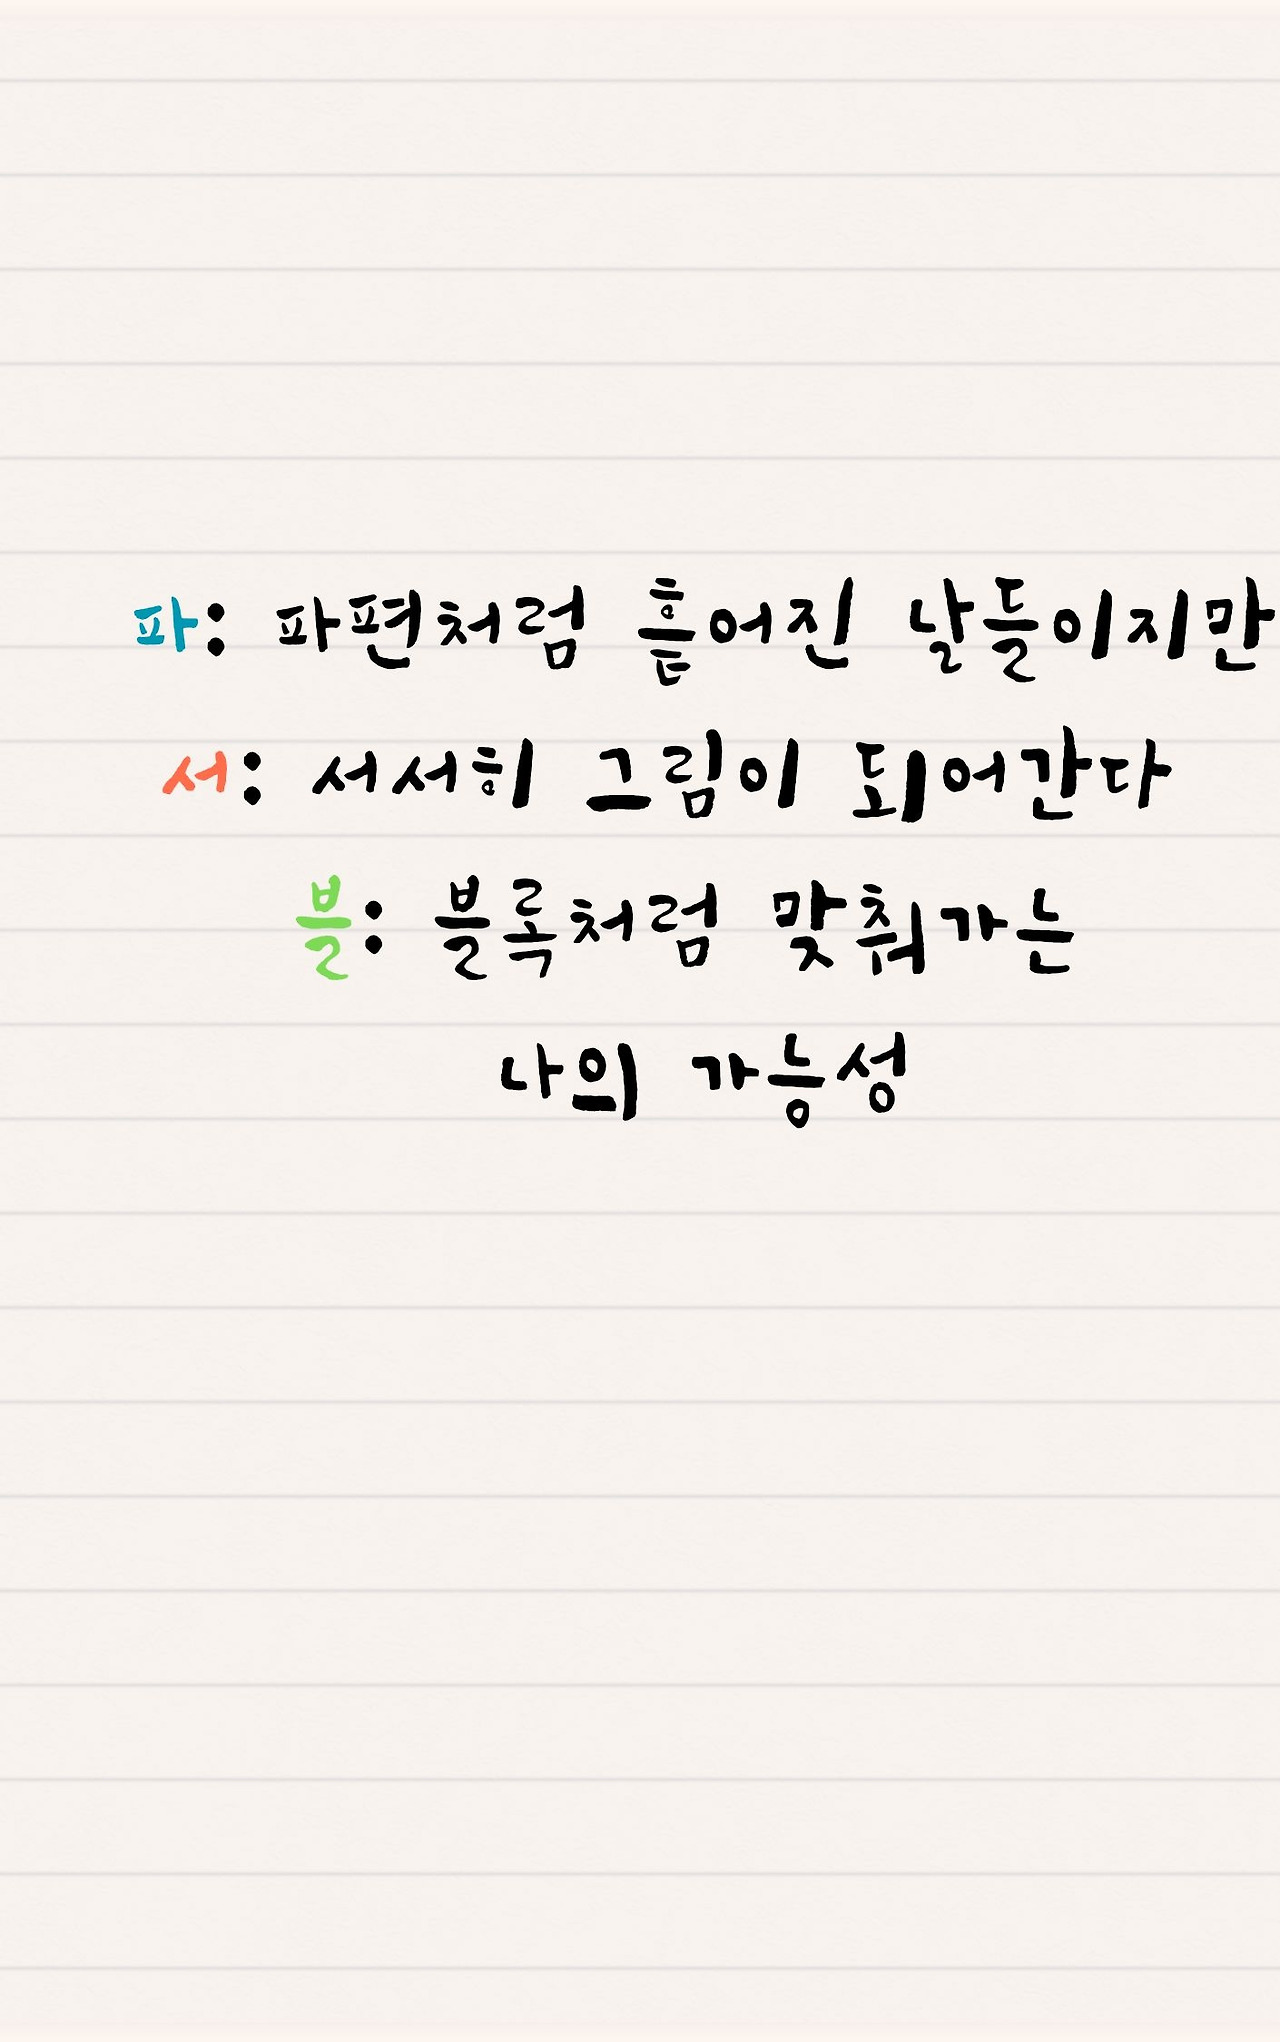 파: 파편처럼 흩어진 날들이지만
서: 서서히 그림이 되어간다
블: 블록처럼 맞춰가는
나의 가능성